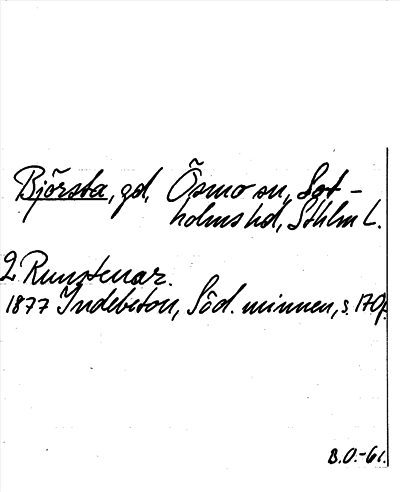 Björsta, gd, Ösmo sn, Sot-
holms hd, Sthlm L.
2 Runstenar.
1877 Indebetou, Söd. minnen, s. 170f.
B.O.-61.